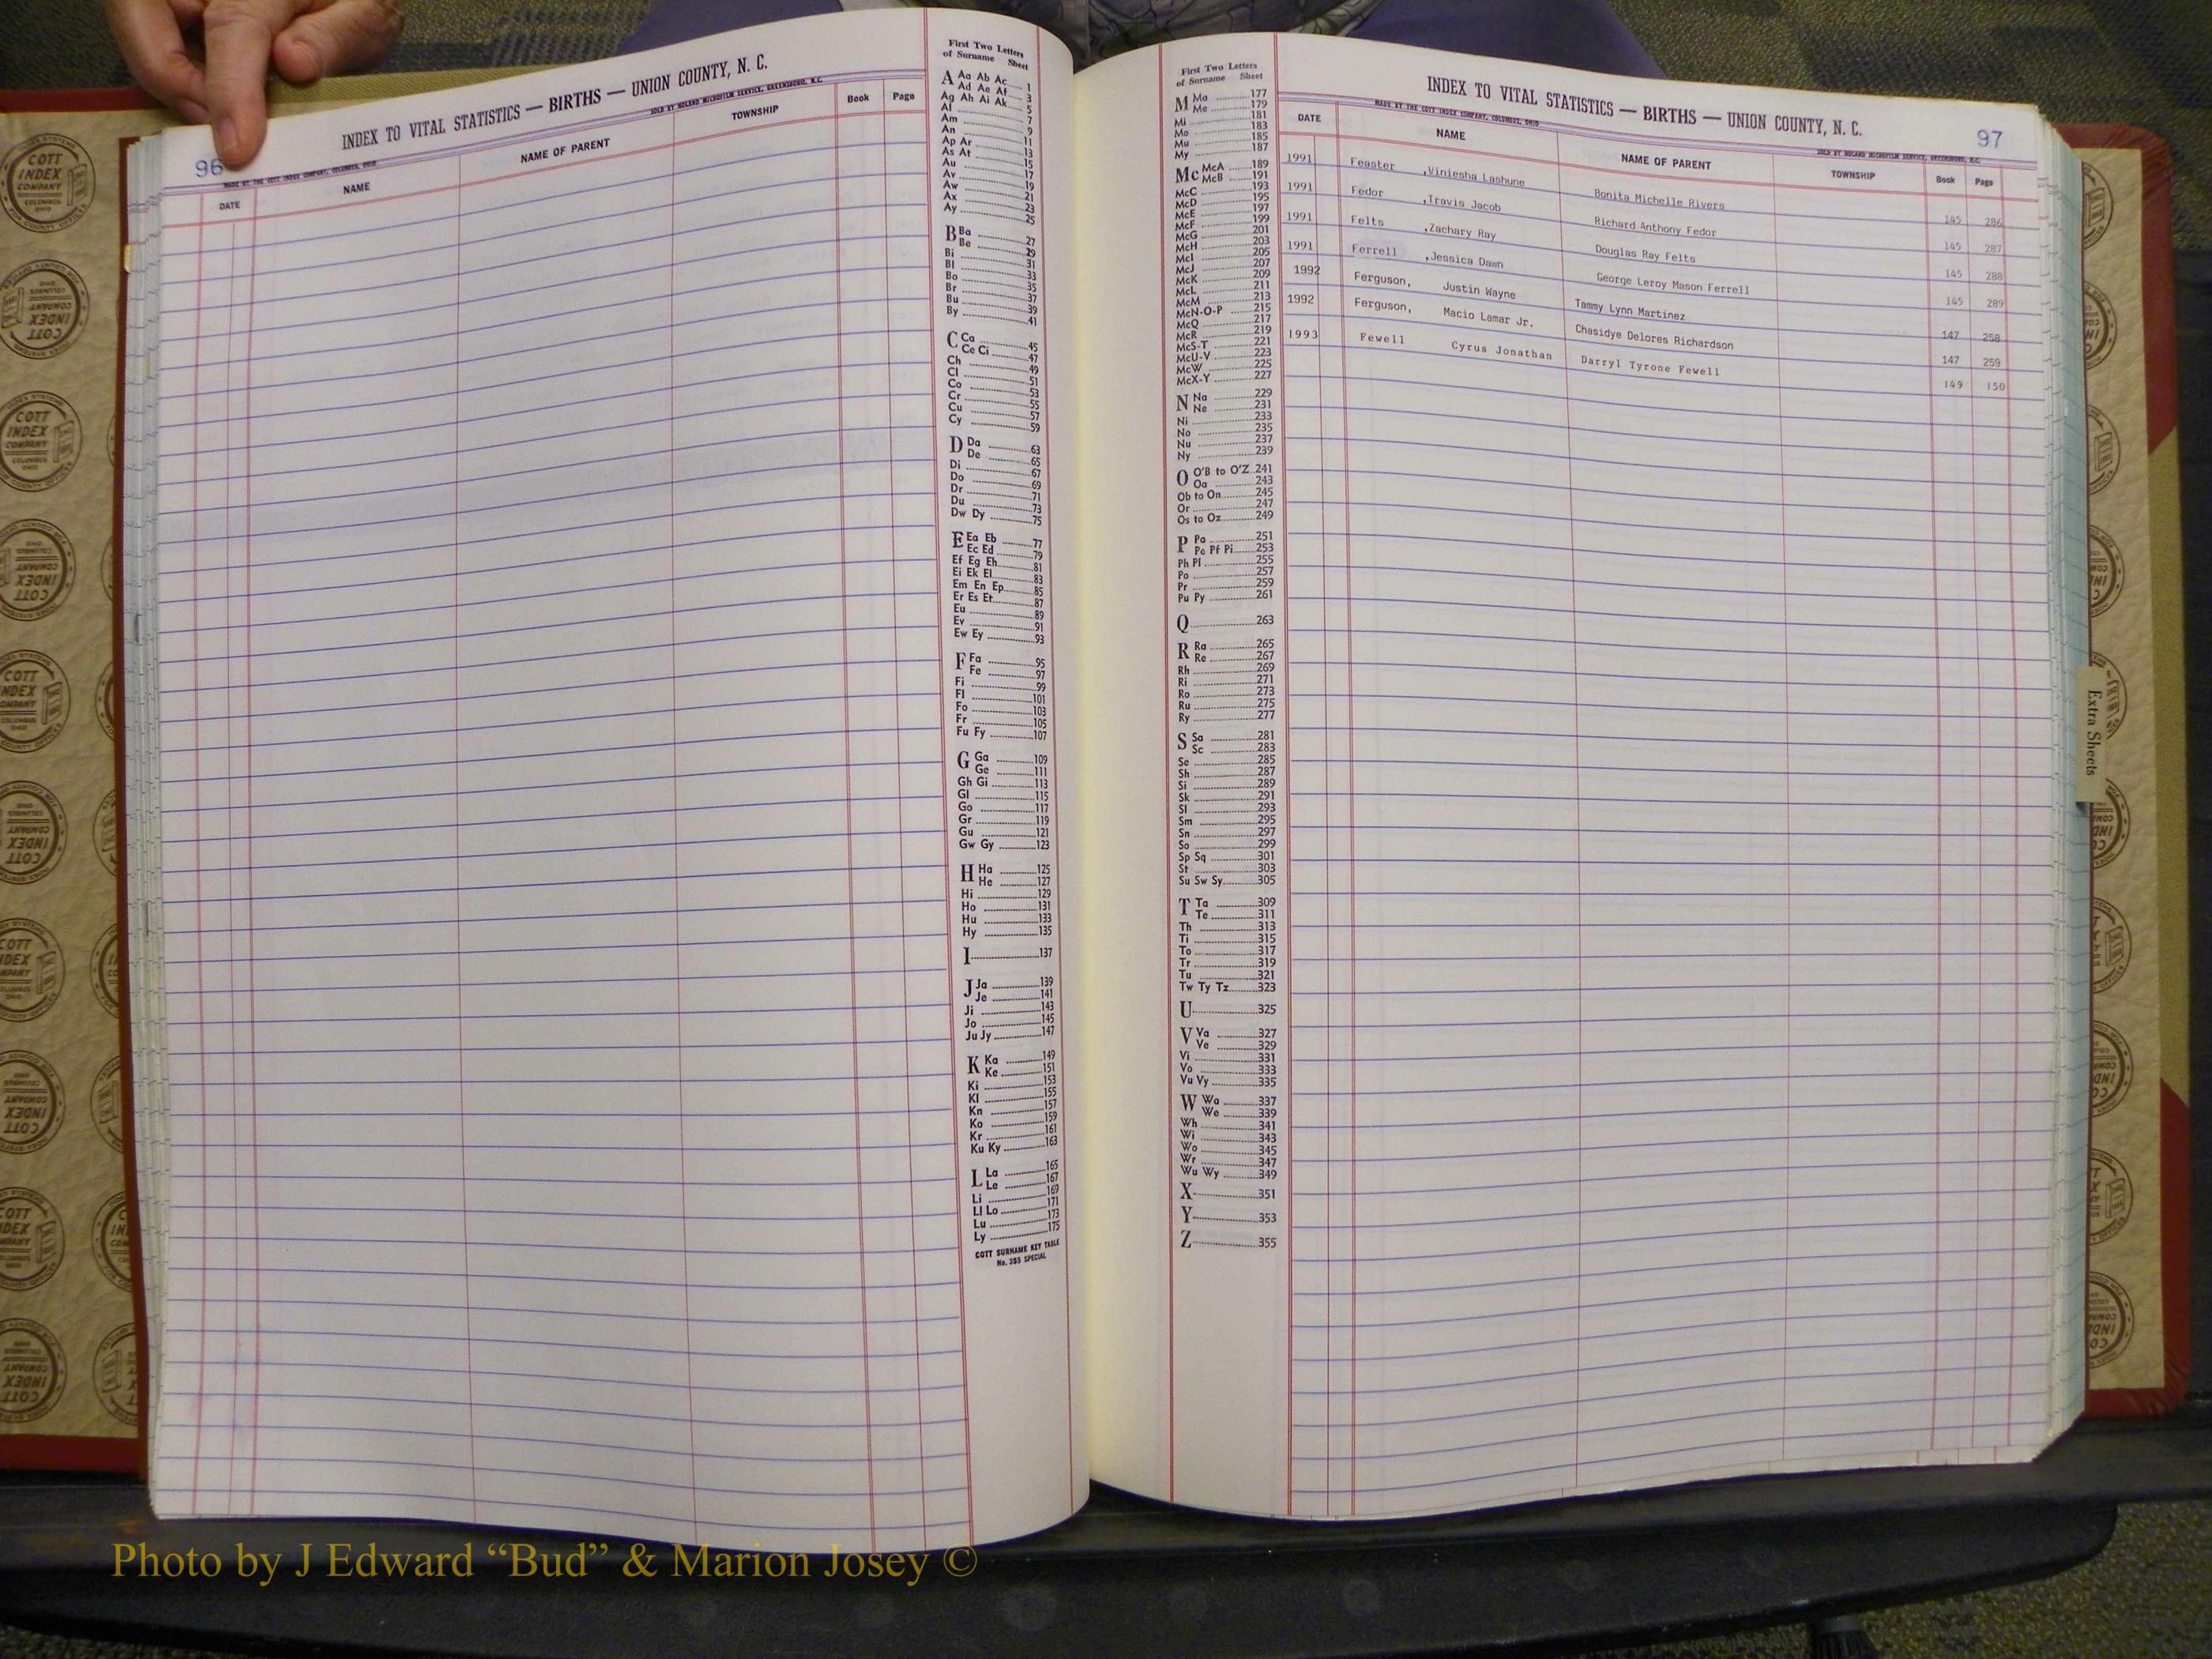 96
INDEX TO VITAL STATISTICS — BIRTHS — UNION COUNTY, N. C.
MADE BY THE COTT INDEX COMPANY, COLUMBUS, OHIO
SOLD BY NOLAND MICROFILM SERVICE, GREENSBORO, N.C.
DATE NAME NAME OF PARENT TOWNSHIP Book Page
First Two Letters
of Surname Sheet
A Aa Ab Ac 1
Ad Ae Af 3
Ag Ah Ai Ak 5
Al 7
An 9
Am
Ap Ar 11
As At 13
Au 15
Av 17
Aw 19
Ax 21
Ay 23
25
B Ba 27
Be 29
Bi 31
Bl 33
Bo 35
Br 37
Bu 39
By 41
C Ca 45
Ce Ci 47
Ch 49
Cl 51
Co 53
Cr 55
Cu 57
Cy 59
D Da 63
De 65
Di 67
Do 69
Dr 71
Du 73
Dw Dy 75
E Ea Eb 77
Ec Ed 79
Ef Eg Eh 81
Ei Ek El 83
Em En Ep 85
Er Es Et 87
Eu 89
Ev 91
Ew Ey 93
F Fa 95
Fe 97
Fi 99
Fl 101
Fo 103
Fr 105
Fu Fy 107
G Ga 109
Ge 111
Gh Gi 113
Gl 115
Go 117
Gr 119
Gu 121
Gw Gy 123
H Ha 125
He 127
Hi 129
Ho 131
Hu 133
Hy 135
I 137
J Ja 139
Je 141
Ji 143
Jo 145
Ju Jy 147
K Ka 149
Ke 151
Ki 153
Kl 155
Kn 157
Ko 159
Kr 161
Ku Ky 163
L La 165
Le 167
Li 169
Ll Lo 171
Lu 173
Ly 175
COTT SURNAME KEY TABLE
No. 355 SPECIAL
First Two Letters
of Surname Sheet
M Ma 177
Me 179
Mi 181
Mo 183
Mu 185
My 187
Mc McA 189
McB 191
McC 193
McD 195
McE 197
McF 199
McG 201
McH 203
McI 205
McJ 207
McK 209
McL 211
McM 213
McN-O-P 215
McQ 217
McR 219
McS-T 221
McU-V 223
McW 225
McX-Y 227
N Na 229
Ne 231
Ni 233
No 235
Nu 237
Ny 239
O O'B to O'Z 241
Oa 243
Ob to On 245
Or 247
Os to Oz 249
P Pa 251
Pe Pf Pi 253
Ph Pl 255
Po 257
Pr 259
Pu Py 261
Q 263
R Ra 265
Re 267
Rh 269
Ri 271
Ro 273
Ru 275
Ry 277
S Sa 281
Sc 283
Se 285
Sh 287
Si 289
Sk 291
Sl 293
Sm 295
Sn 297
So 299
Sp Sq 301
St 303
Su Sw Sy 305
T Ta 309
Te 311
Th 313
Ti 315
To 317
Tr 319
Tu 321
Tw Ty Tz 323
U 325
V Va 327
Ve 329
Vi 331
Vo 333
Vu Vy 335
W Wa 337
We 339
Wh 341
Wi 343
Wo 345
Wr 347
Wu Wy 349
X 351
Y 353
Z 355
INDEX TO VITAL STATISTICS — BIRTHS — UNION COUNTY, N. C.
97
MADE BY THE COTT INDEX COMPANY, COLUMBUS, OHIO
SOLD BY NOLAND MICROFILM SERVICE, GREENSBORO, N.C.
DATE NAME NAME OF PARENT TOWNSHIP Book Page
1991 Feaster ,Viniesha Lashune Bonita Michelle Rivers 145 286
1991 Fedor ,Travis Jacob Richard Anthony Fedor 145 287
1991 Felts ,Zachary Ray Douglas Ray Felts 145 288
1991 Ferrell ,Jessica Dawn George Leroy Mason Ferrell 145 289
1992 Ferguson, Justin Wayne Tammy Lynn Martinez 147 258
1992 Ferguson, Macio Lamar Jr. Chasidye Delores Richardson 147 259
1993 Fewell Cyrus Jonathan Darryl Tyrone Fewell 149 150
Extra Sheets
COTT
INDEX
COMPANY
COLUMBUS
OHIO
Photo by J Edward “Bud” & Marion Josey ©